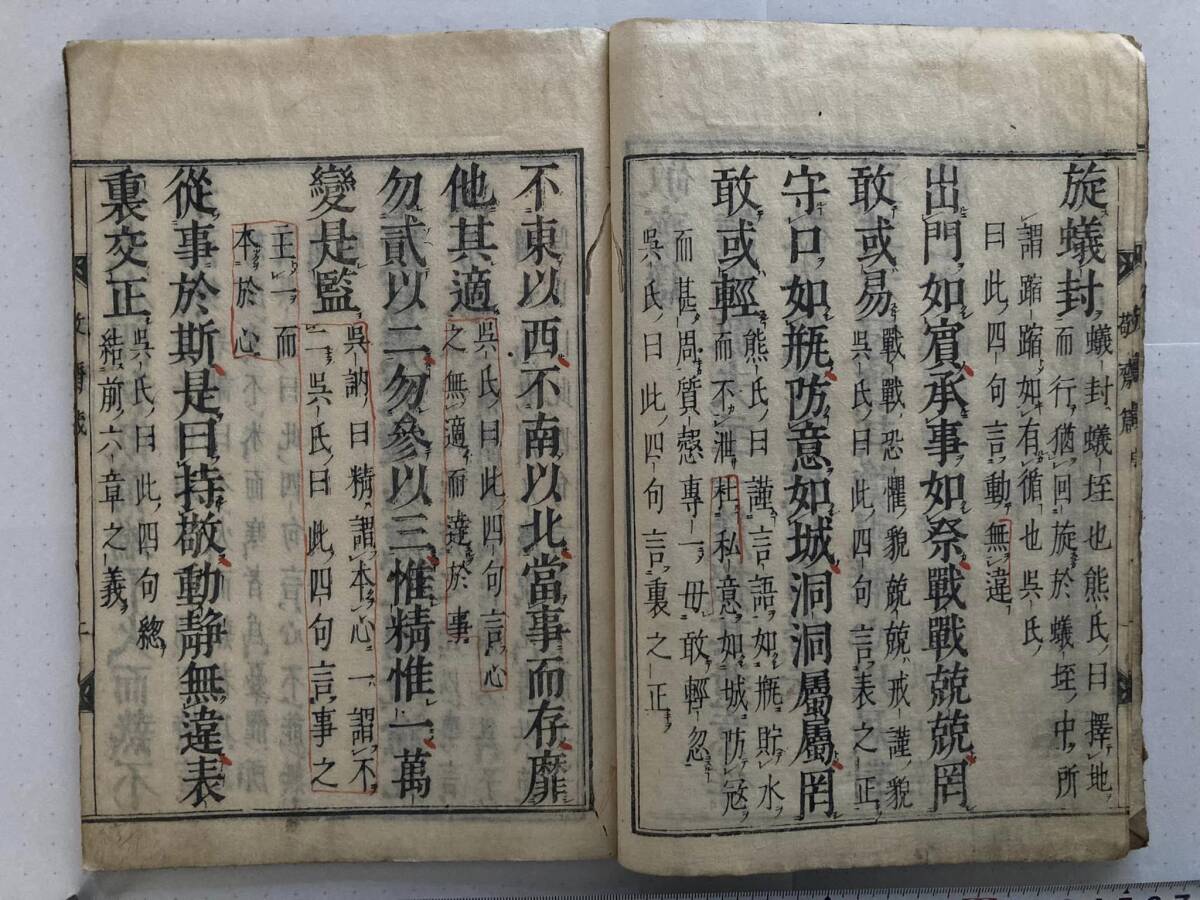 旋蟻封
蟻封蟻垤也熊氏曰擇地
而行猶回旋於蟻垤中所
謂蹜蹜如有循也吳氏
曰此四句言動無違
出門如賓承事如祭戰戰兢兢罔
敢或易
戰戰恐懼貌兢兢戒謹貌
吳氏曰此四句言表之正
守口如瓶防意如城洞洞屬屬罔
敢或輕
熊氏曰謹言語如瓶貯水
而不泄杜私意如城防寇
而甚周質慤專一毋敢輕忽
吳氏曰此四句言裏之正
不東以西不南以北當事而存靡
他其適
吳氏曰此四句言心
之無適而達於事
勿貳以二勿參以三惟精惟一萬
變是監
吳訥曰精謂本心一謂不
二吳氏曰此四句言事之
主一而
本於心
從事於斯是曰持敬動靜無違表
裏交正
吳氏曰此四句總
結前六章之義